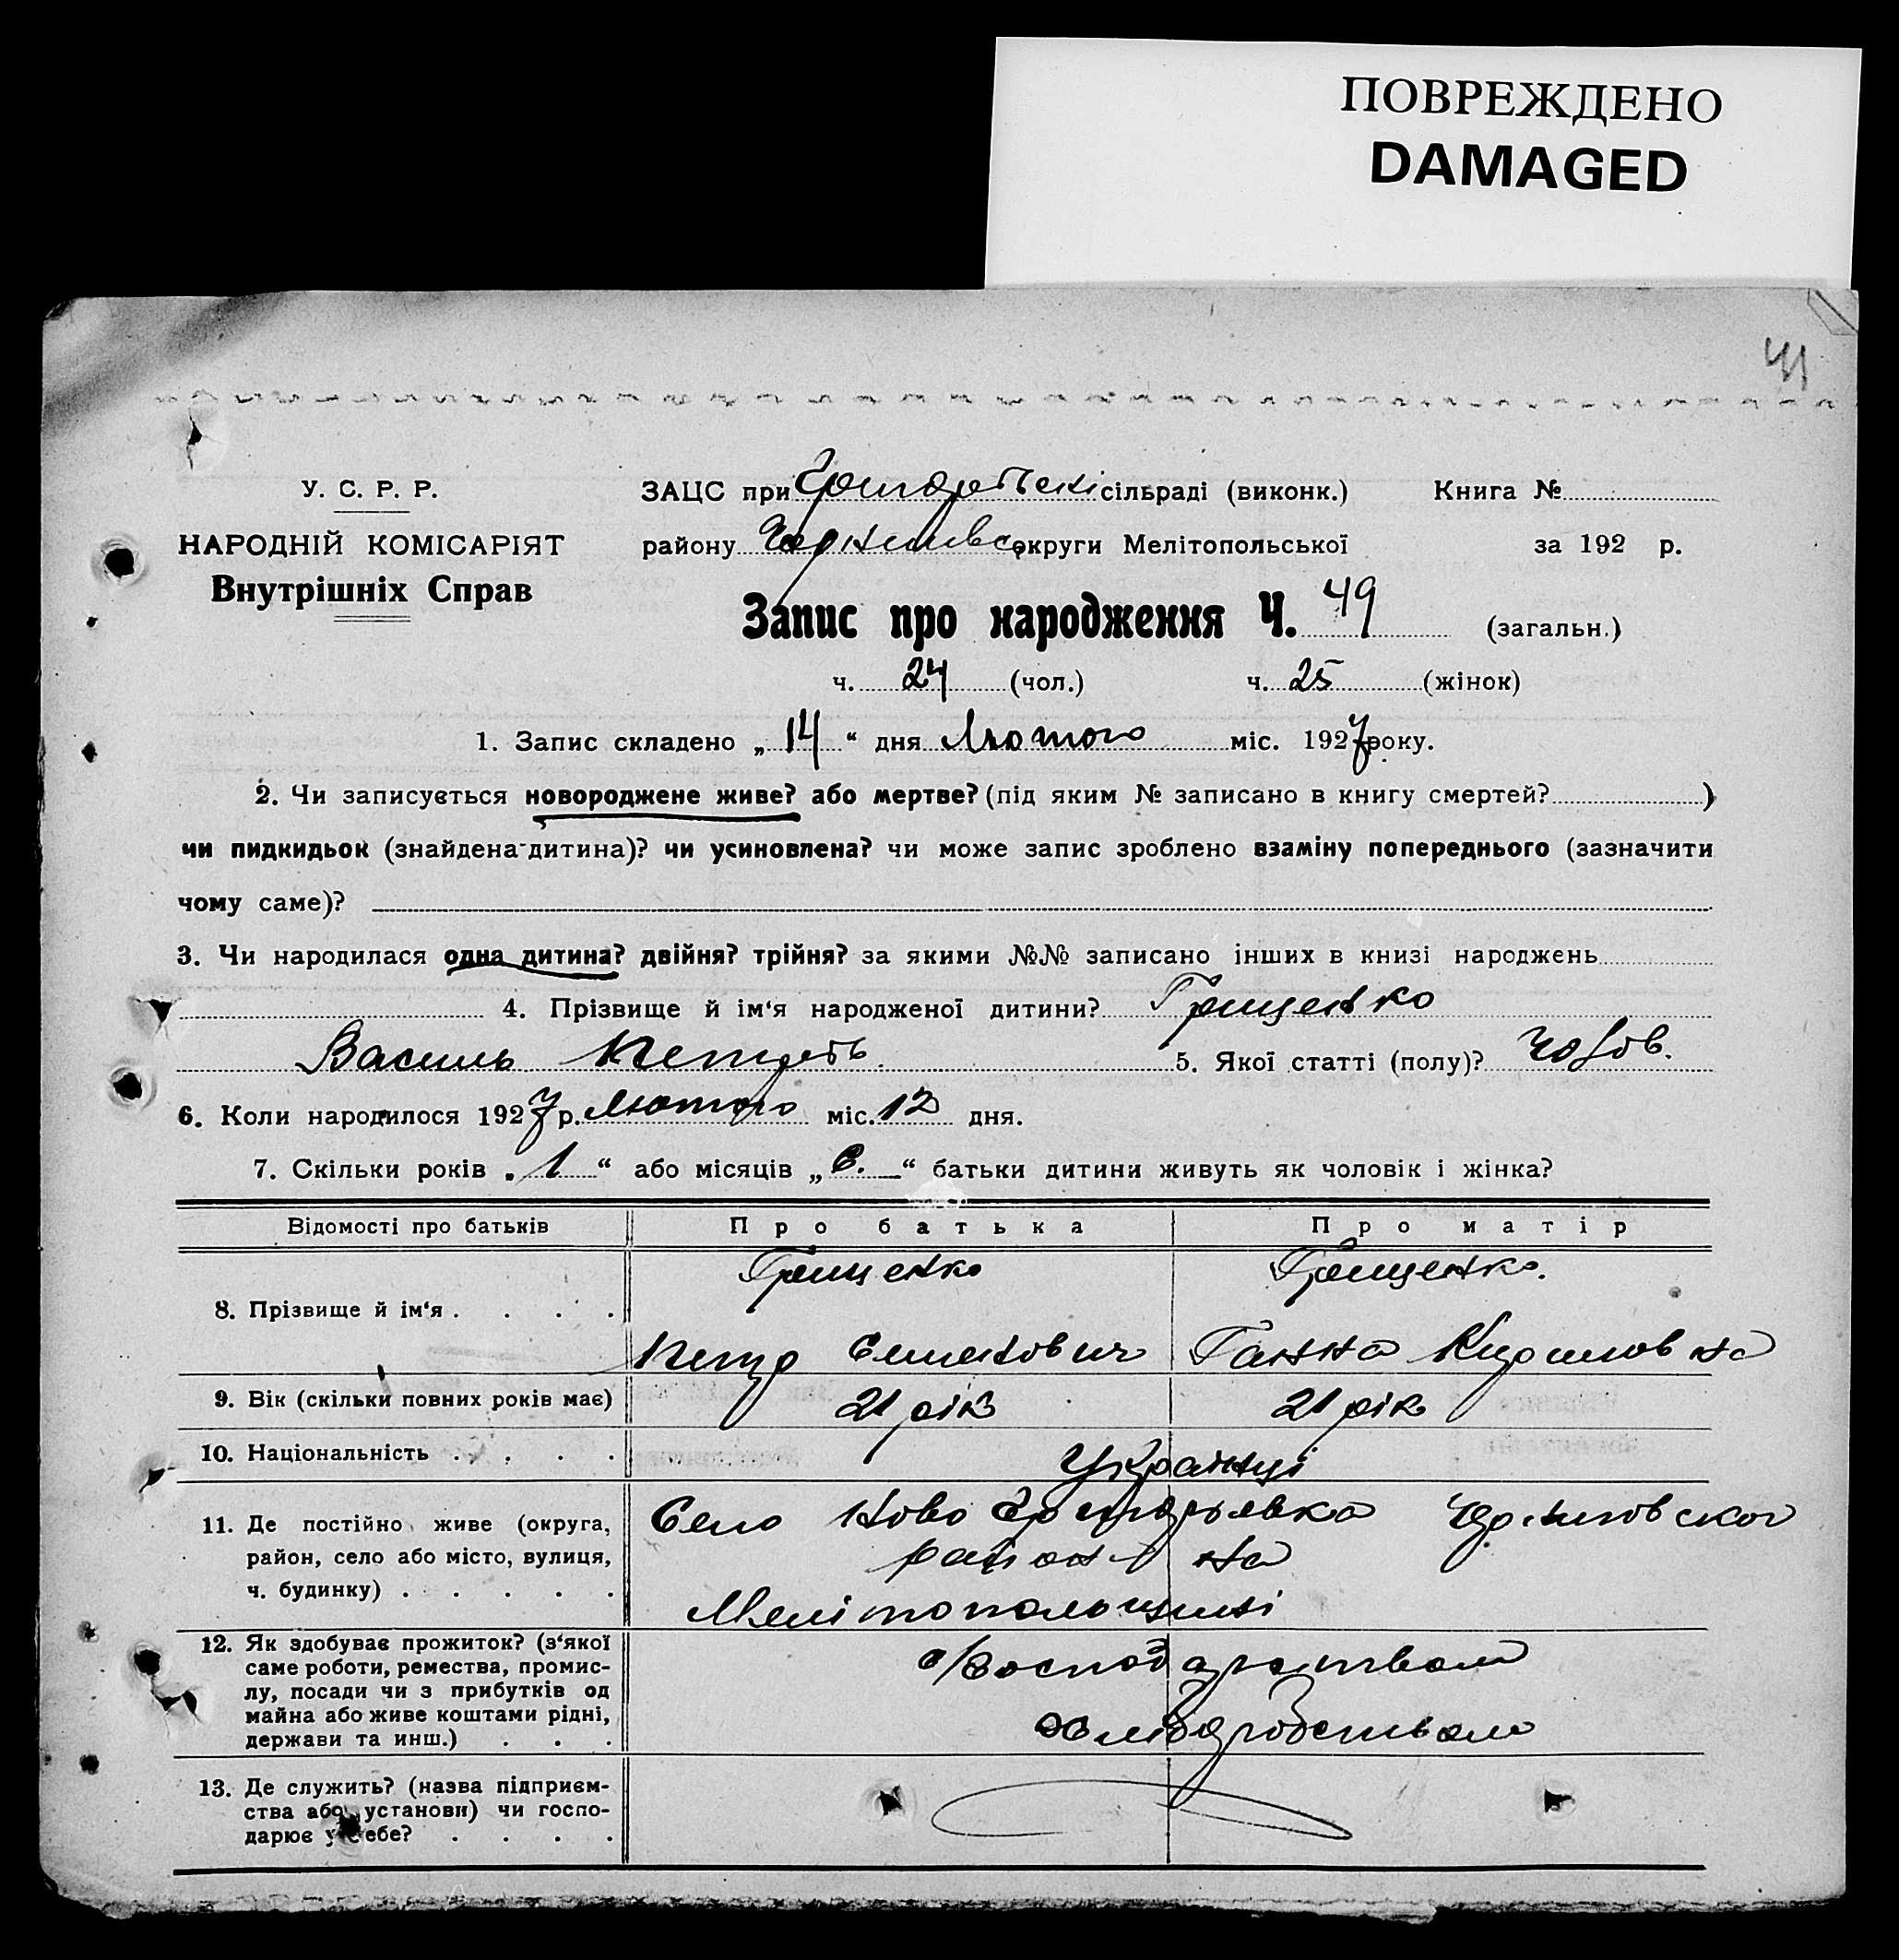 ПОВРЕЖДЕНО
DAMAGED
41
У. С. Р. Р.
НАРОДНІЙ КОМІСАРІЯТ
Внутрішніх Справ
ЗАЦС при сільраді (виконк.) Книга №
району округи Мелітопольської за 192 р.
Запис про народження Ч. 49 (загальн.)
ч. 24 (чол.) ч. 25 (жінок)
1. Запис складено „ 14 “ дня Лютого міс. 1927 року.
2. Чи записується новороджене живе? або мертве? (під яким № записано в книгу смертей? )
чи пидкидьок (знайдена-дитина)? чи усиновлена? чи може запис зроблено взаміну попереднього (зазначити
чому саме)?
3. Чи народилася одна дитина? двійня? трійня? за якими №№ записано інших в книзі народжень
4. Прізвище й ім‘я народженої дитини? Грищенко
Василь Петров. 5. Якої статті (полу)? Чолов.
6. Коли народилося 1927 р. Лютого міс. 12 дня.
7. Скільки років „ 1 “ або місяців „ “ батьки дитини живуть як чоловік і жінка?
Відомості про батьків Про батька Про матір
8. Прізвище й ім‘я . . . . Грищенко Грищенко.
Петро Семенович Ганна Кириловна
9. Вік (скільки повних років має) 21 рік 21 рік
10. Національність . . . . Українці
11. Де постійно живе (округа,
район, село або місто, вулиця,
ч. будинку) . . . . .
Село Ново Григорьевка
району на
Мелітопольщині
12. Як здобуває прожиток? (з‘якої
саме роботи, ремества, промис-
лу, посади чи з прибутків од
майна або живе коштами рідні,
держави та инш.) . . .
с/господарством
хлібробством
13. Де служить? (назва підприєм-
ства або установи) чи госпо-
дарює у себе? . . . .